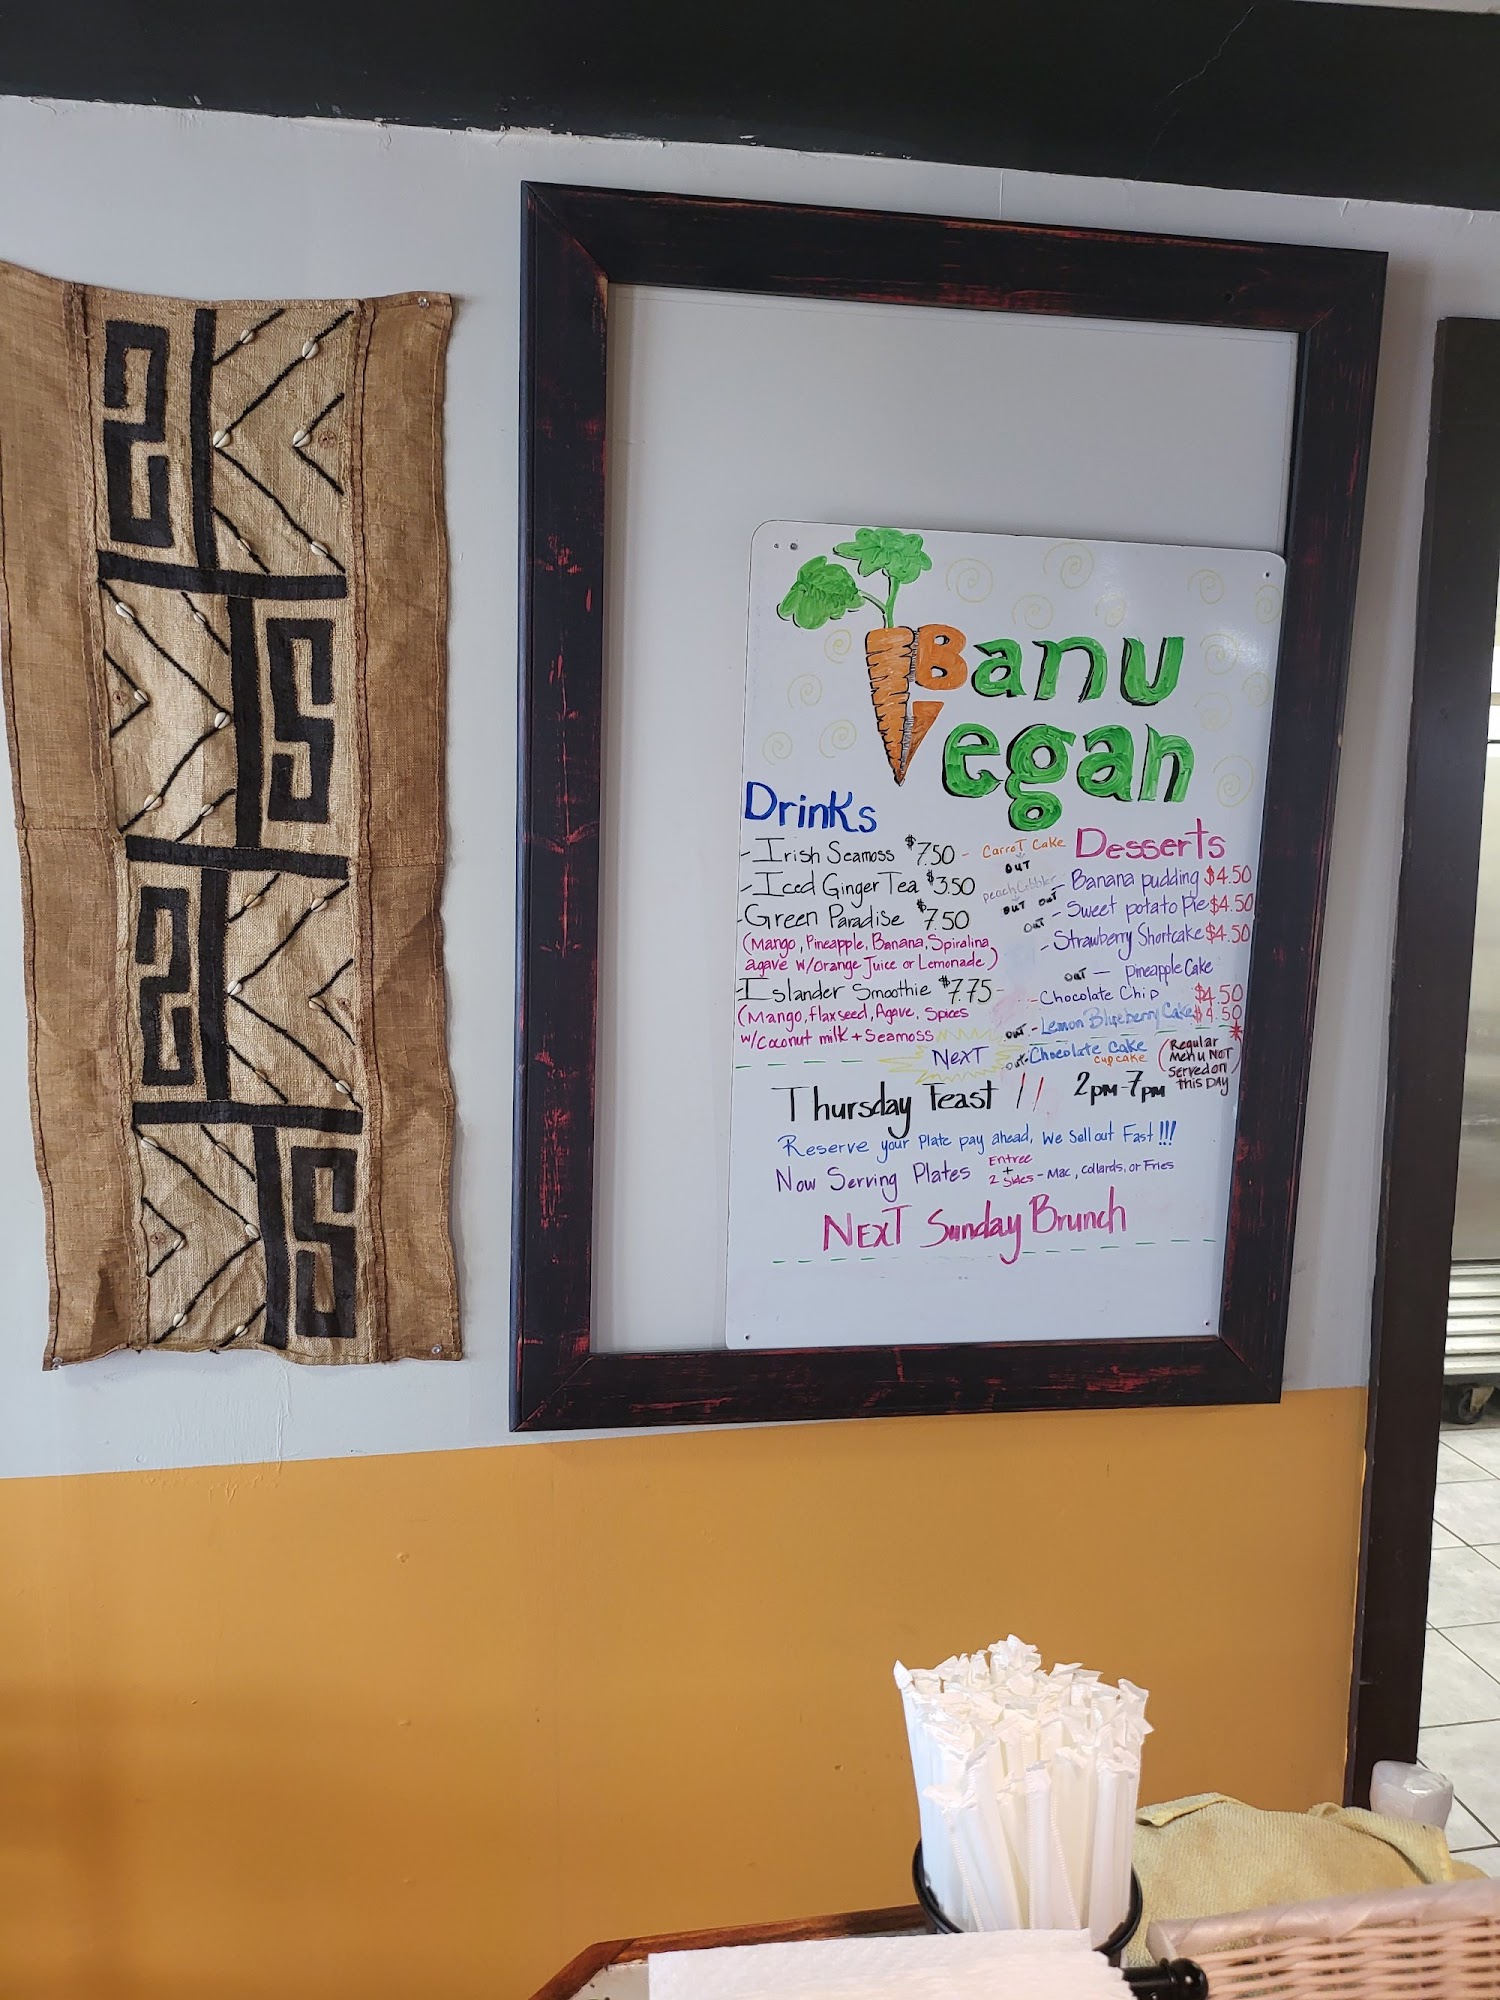 Banu
Vegan
Drinks
- Irish Seamoss $7.50 -
- Iced Ginger Tea $3.50
- Green Paradise $7.50
(Mango, Pineapple, Banana, Spiralina,
agave w/Orange Juice or Lemonade)
- Islander Smoothie $7.75 -
(Mango, flaxseed, Agave, Spices
w/Coconut milk + Seamoss
Carrot Cake
OUT
peach Cobbler
OUT
Desserts
OUT - Banana pudding $4.50
OUT - Sweet potato Pie $4.50
- Strawberry Shortcake $4.50
OUT - Pineapple Cake
- Chocolate Chip $4.50
OUT - Lemon Blueberry Cake $4.50
OUT - Chocolate Cake
Cupcake
*
(Regular
Menu NOT
Served on
this DAY)
NexT
Thursday Feast !! 2pm-7pm
Reserve your Plate pay ahead, We Sell out Fast !!!
Now Serving Plates Entree
+
2 Sides - Mac, collards, or Fries
NexT Sunday Brunch